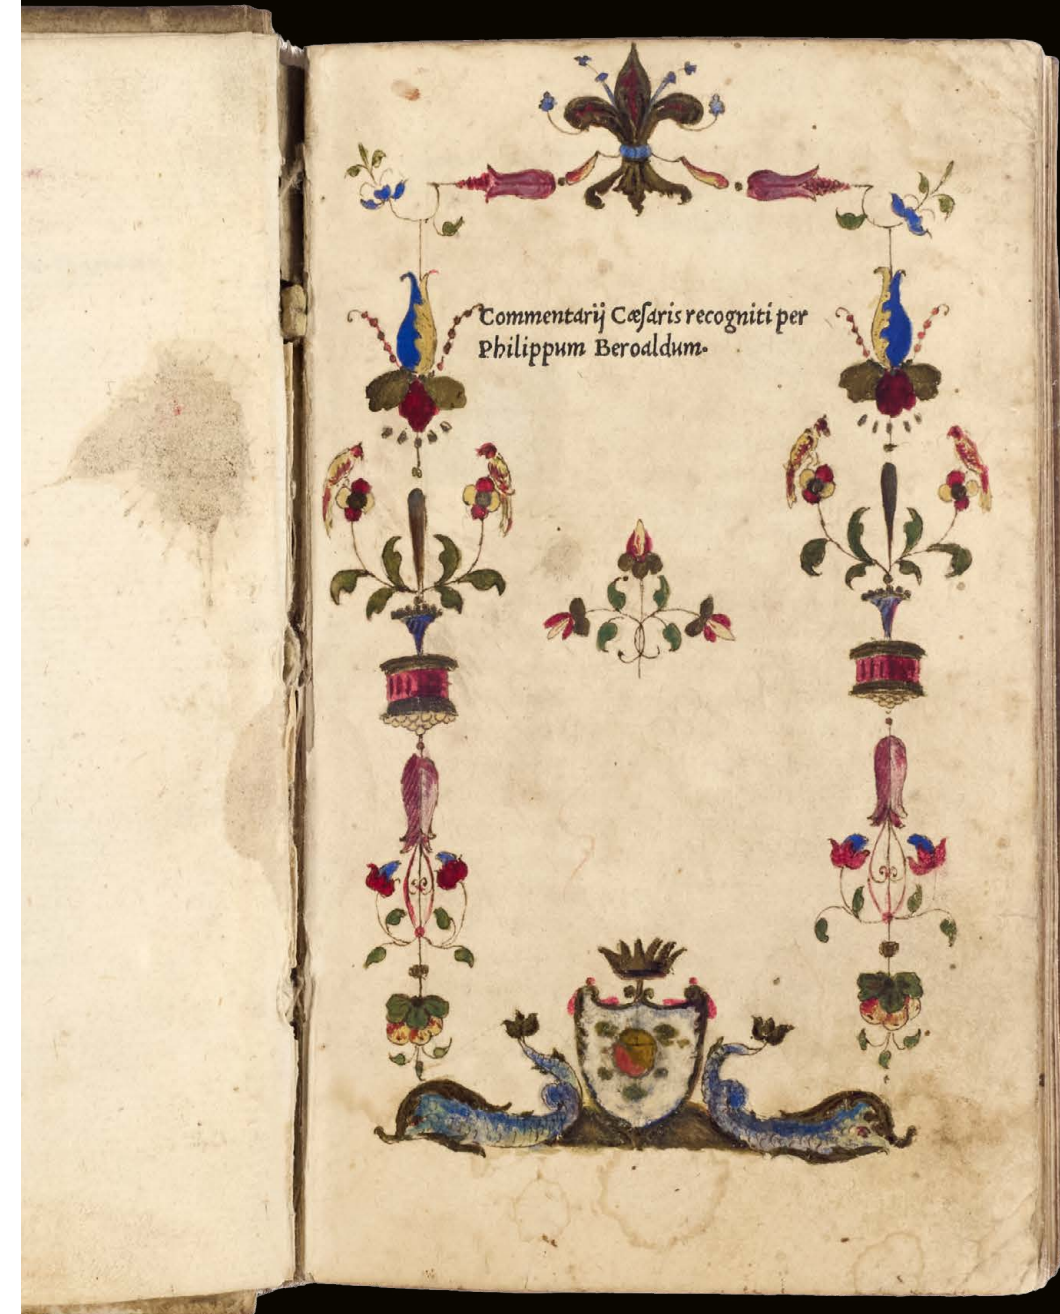 Commentarij Cæſaris recogniti per
Philippum Beroaldum.